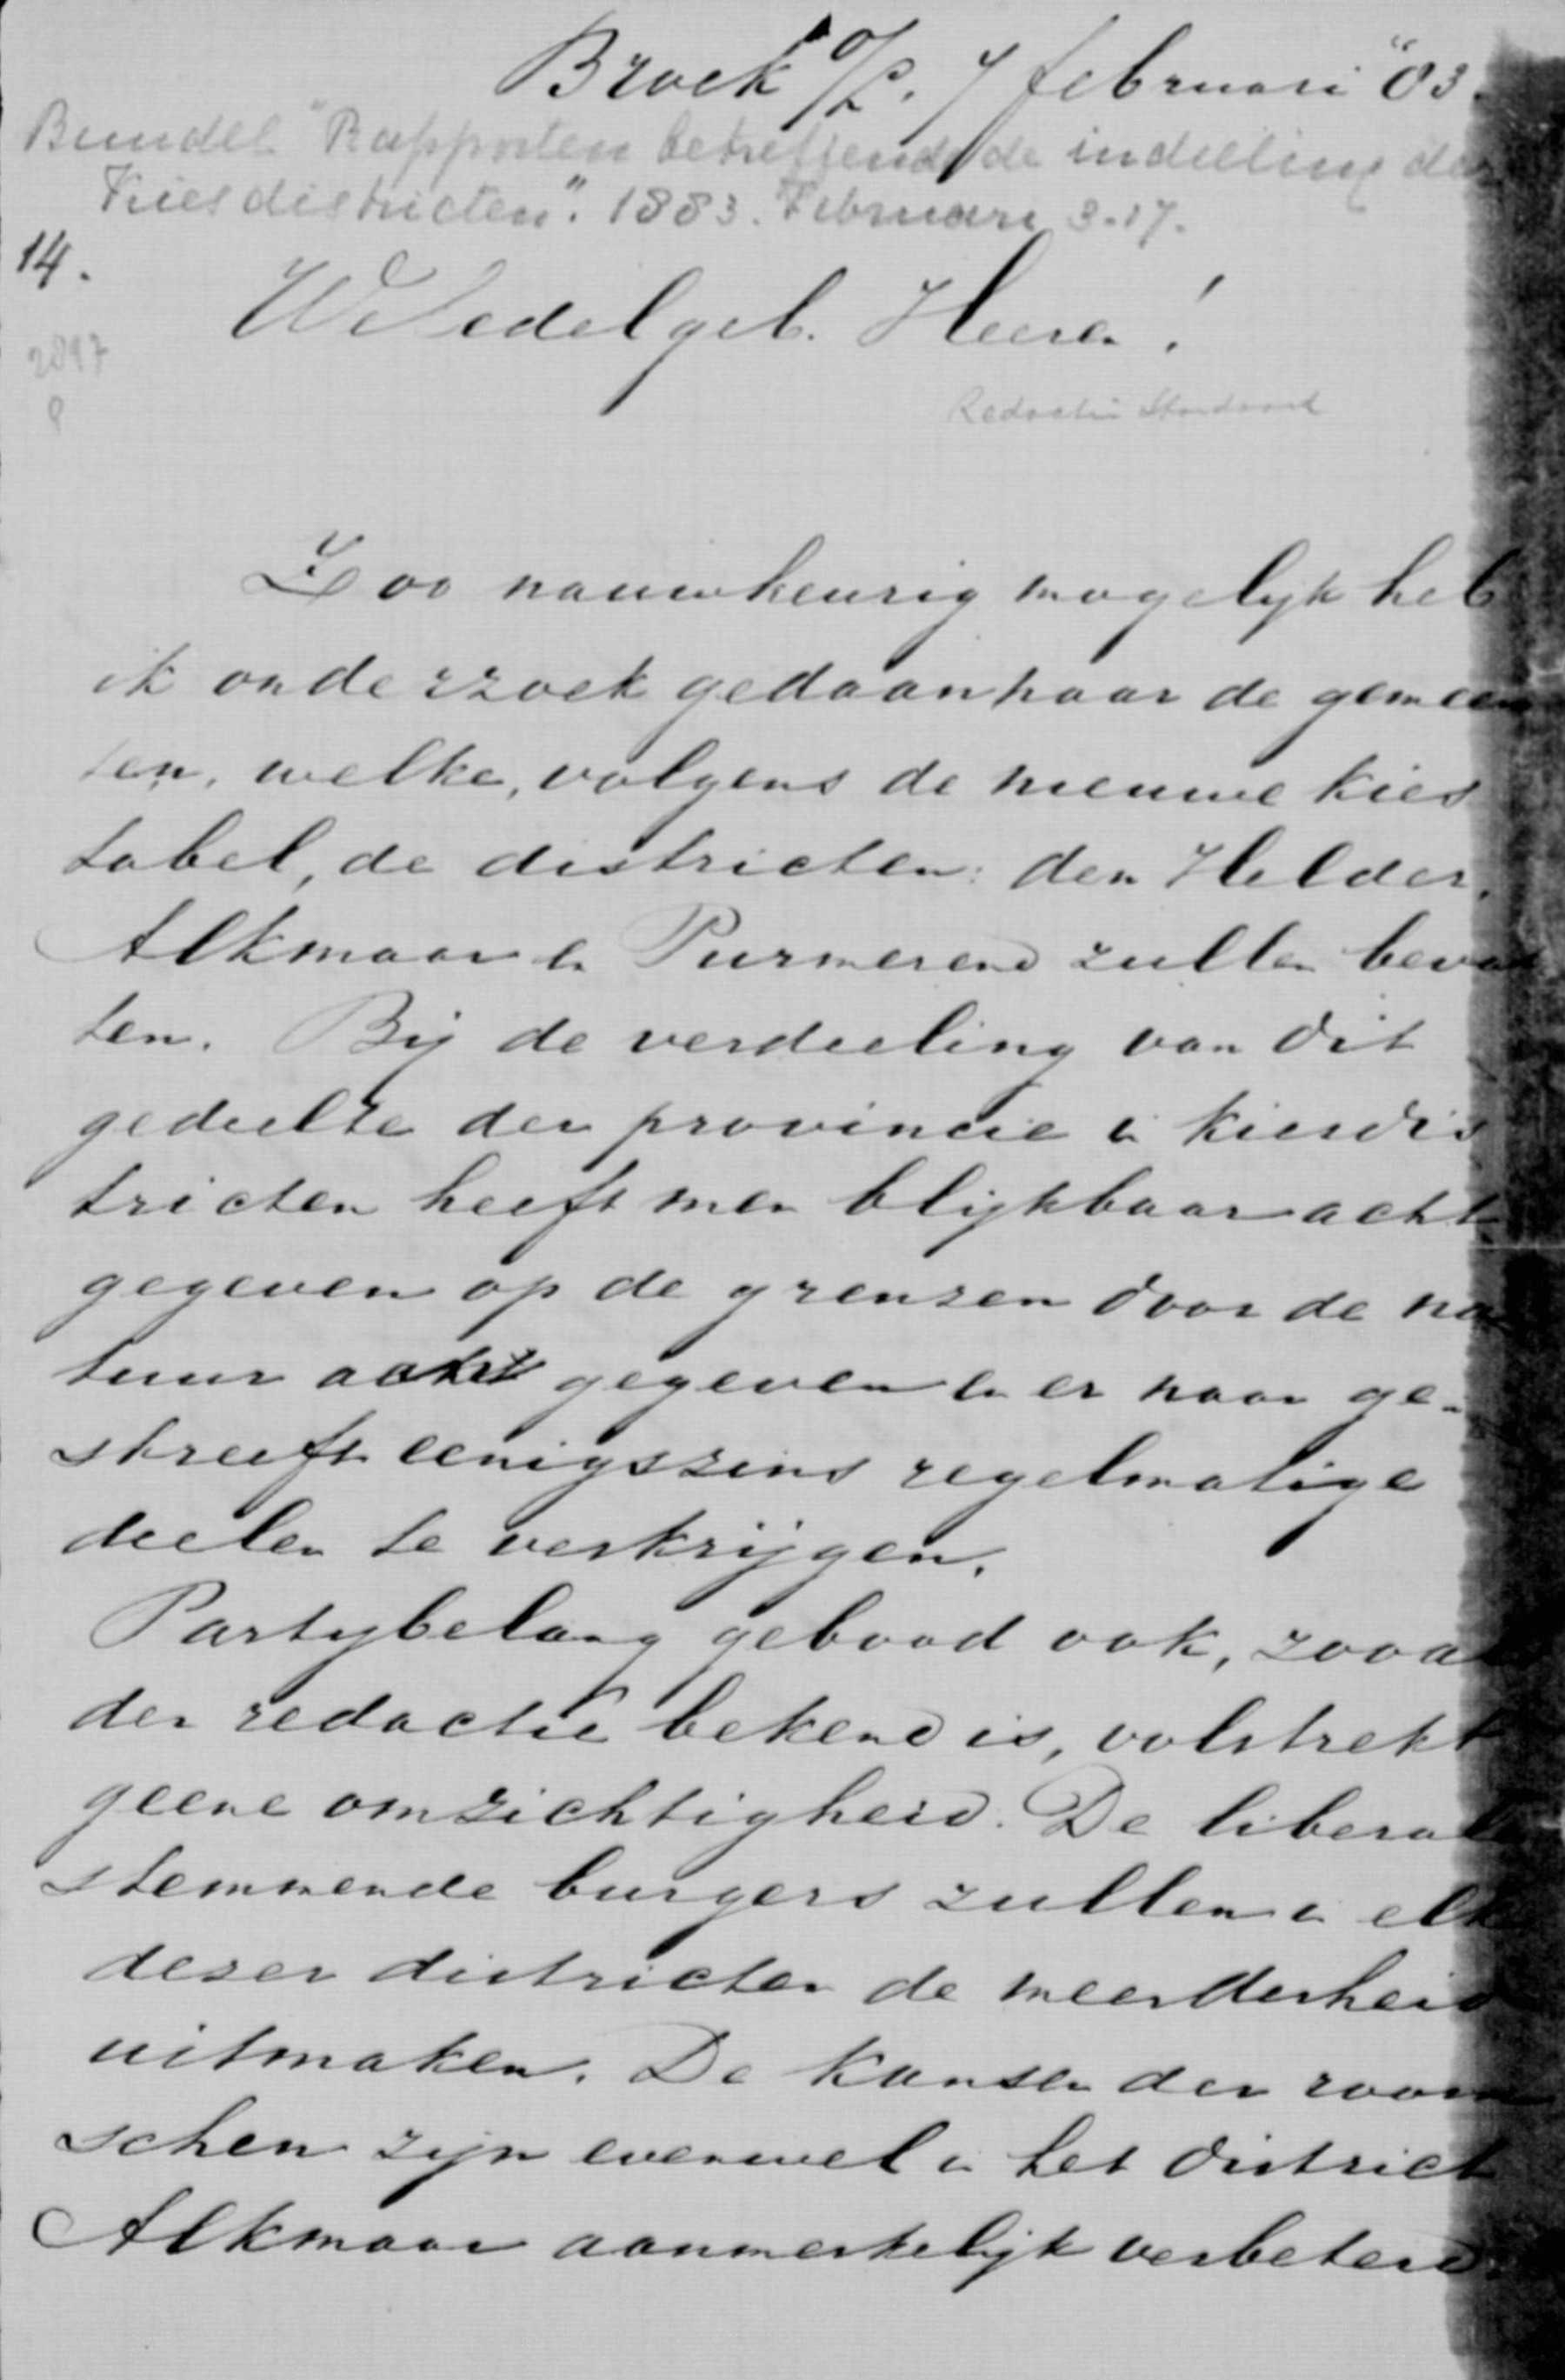 Broek o/L. 7 februari "83.
Bundel "Rapporten betreffende de indeeling der
Kiesdistricten". 1883. Februari 3-17.
14.
WelEdelgeb. Heeren!
2897
Redactie Standaard
Zoo nauwkeurig mogelijk heb
ik onderzoek gedaan naar de gemeen
ten, welke, volgens de nieuwe kies
tabel, de districten: den Helder,
Alkmaar en Purmerend zullen bevat
ten. Bij de verdeeling van dit
gedeelte der provincie in kiesdis
tricten heeft men blijkbaar acht
gegeven op de grenzen door de na
tuur gegeven en er naar ge-
streeft eenigszins regelmatige
deelen te verkrijgen.
Partybelang gebood ook, zooals
der redactie bekend is, volstrekt
geene omzichtigheid. De liberale
stemmende burgers zullen in elk
dezer districten de meerderheid
uitmaken. De kansen der room
schen zijn evenwel in het district
Alkmaar aanmerkelijk verbeterd.